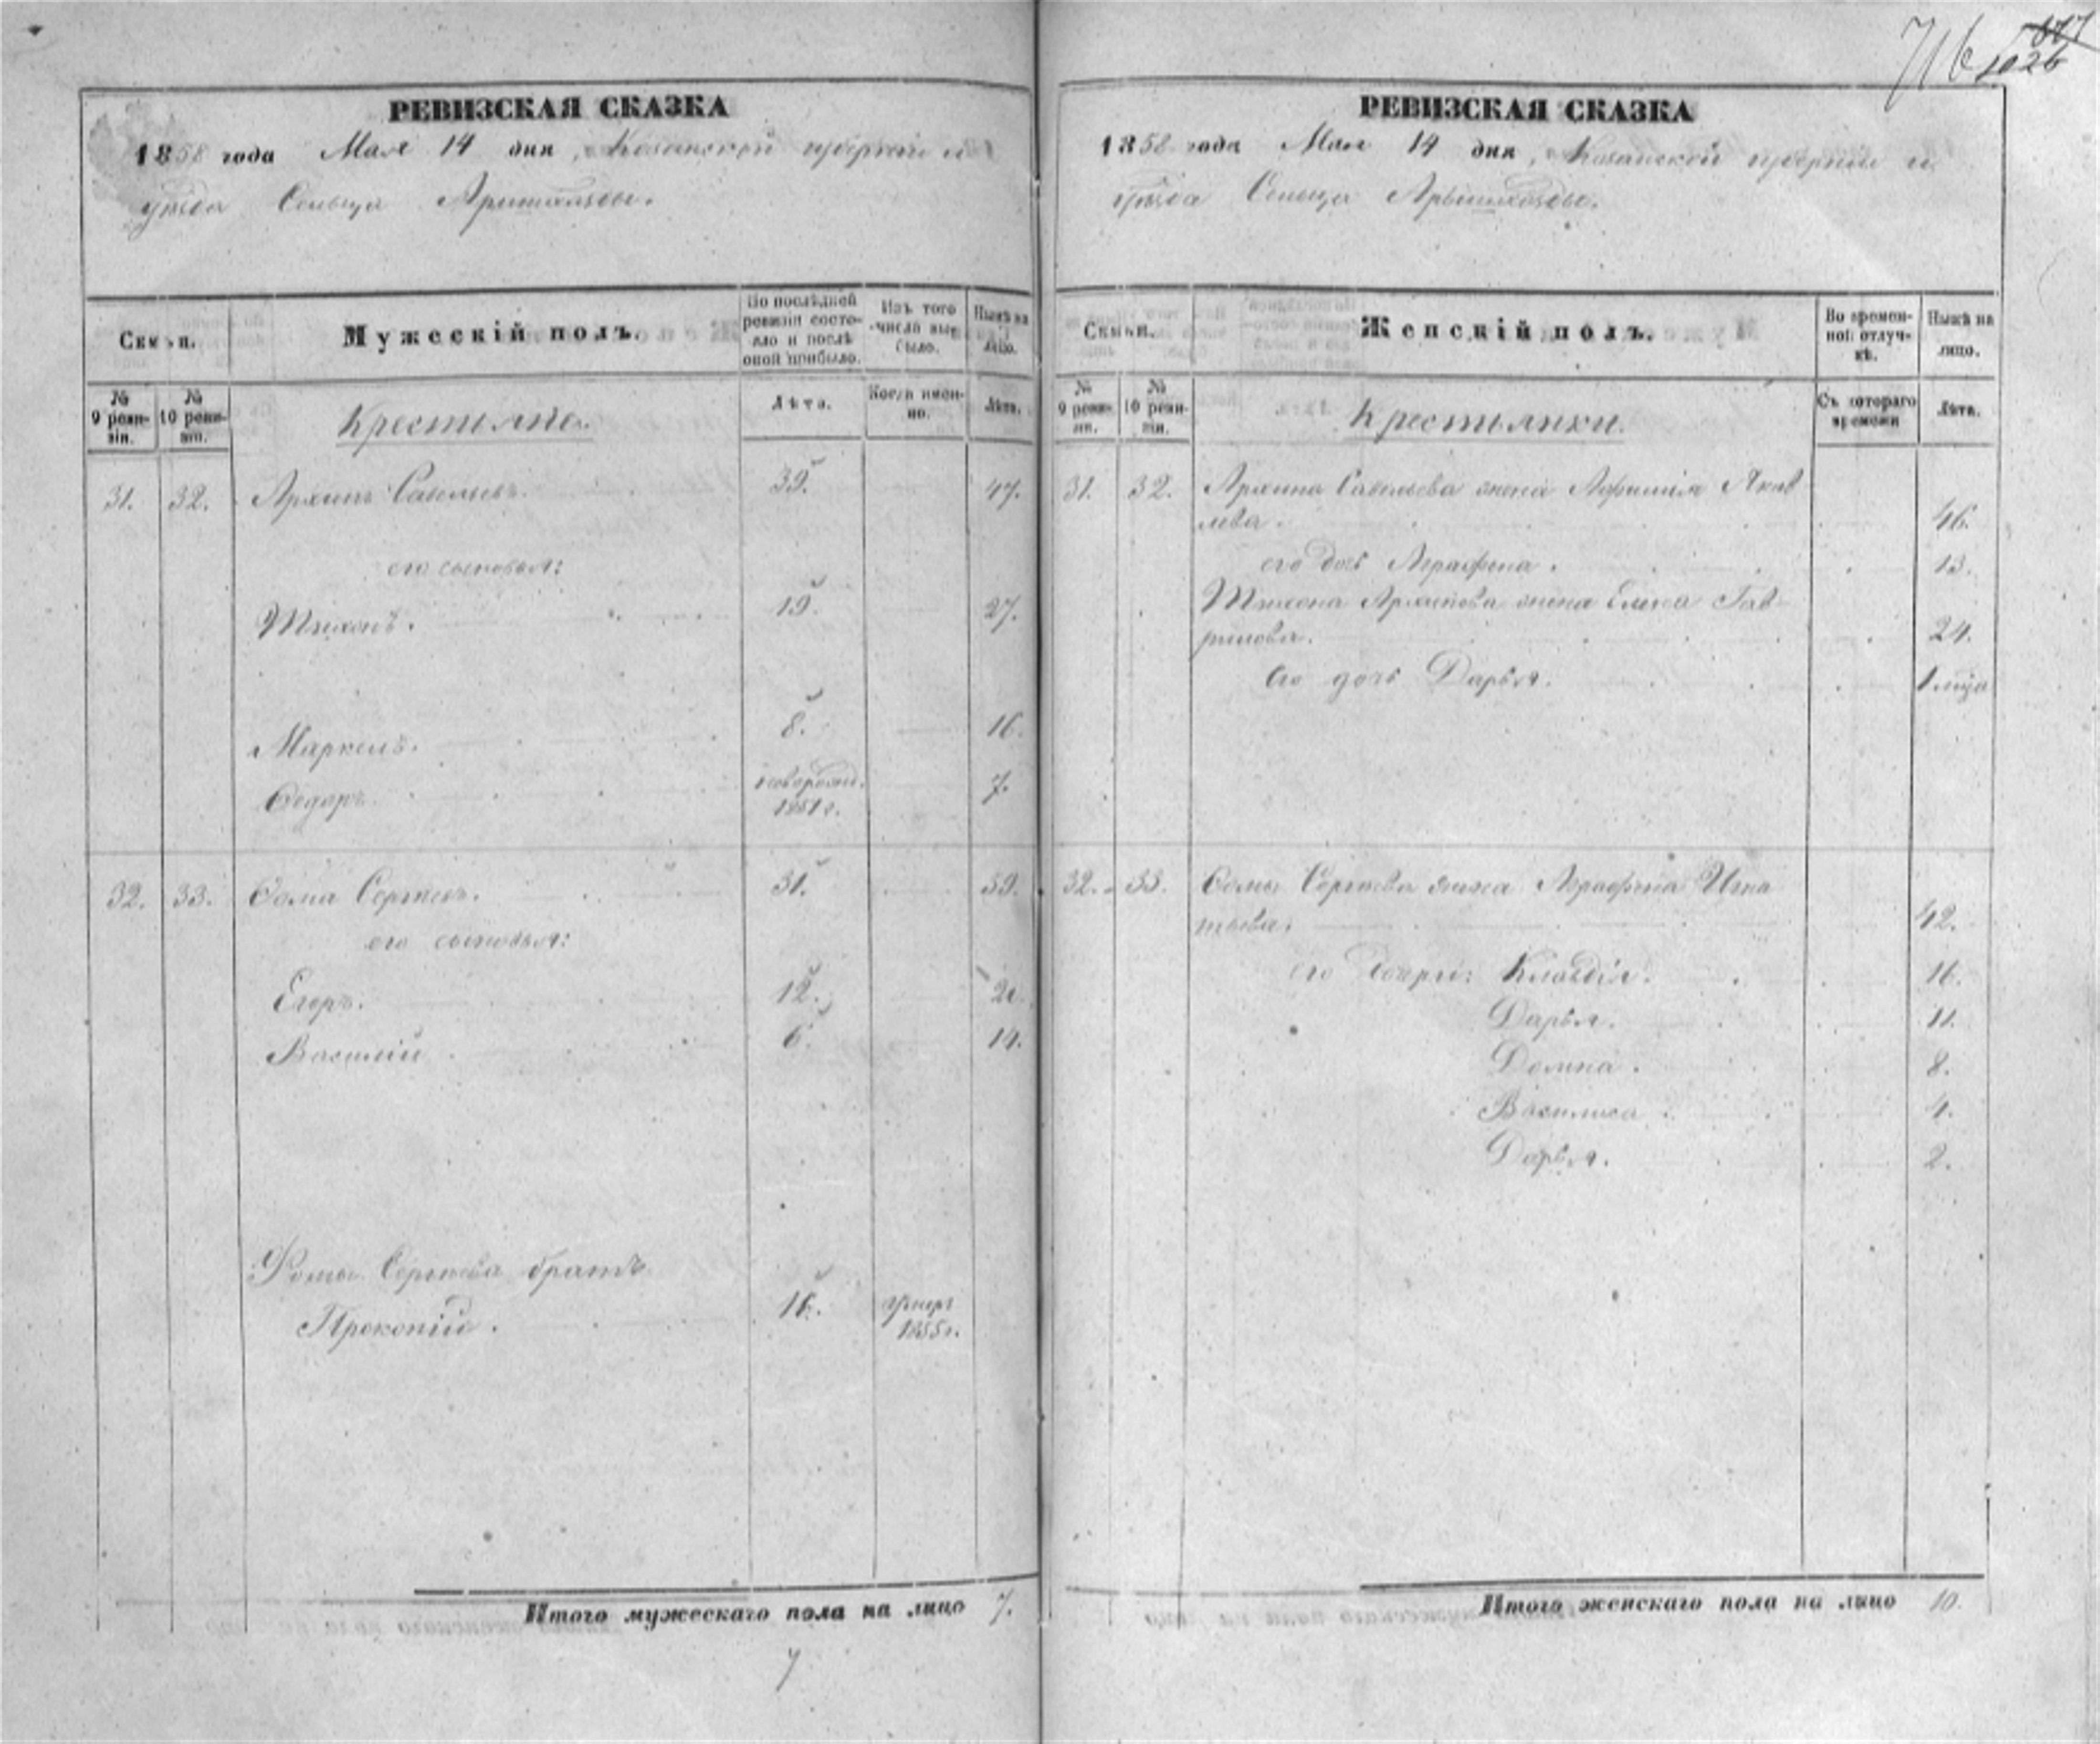 716 1026
РЕВИЗСКАЯ СКАЗКА
1858 года Мая 14 дня, Казанской губерніи и
уѣзда Сельца
Семьи.
Мужескій полъ.
По послѣдней ревизіи состояло и послѣ оной прибыло.
Изъ того числа выбыло.
Нынѣ на лицо.
№ 9 ревизіи.
№ 10 ревизіи.
Крестьяне.
Лѣта.
Когда именно.
Лѣта.
31. 32. Архипъ Савельевъ. 39. 47.
его сыновья:
Тихонъ. 19. 27.
Маркелъ. 8. 16.
Ѳедоръ. новорожд. 7.
1851 г.
32. 33. Ѳома Сергѣевъ. 31. 39.
его сыновья:
Егоръ. 12. 20.
Василій. 6. 14.
Ѳомы Сергѣева братъ
Прокопій. 16. умеръ
1855 г.
Итого мужескаго пола на лицо 7.
7
РЕВИЗСКАЯ СКАЗКА
1858 года Мая 14 дня, Казанской губерніи и
уѣзда Сельца
Семьи.
Женскій полъ.
Во временной отлучкѣ.
Нынѣ на лицо.
№ 9 ревизіи.
№ 10 ревизіи.
Крестьянки.
Съ котораго времени
Лѣта.
31. 32. Архипа Савельева жена Афимія Яков
лева. 46.
его дочь Аграфена. 13.
Тихона Архипова жена Елена Гав-
рилова. 24.
его дочь Дарья. 1 мѣца
32. 33. Ѳомы Сергѣева жена Аграфена Игна
тьева. 42.
его дочери: Клавдія. 16.
Дарья. 11.
Домна. 8.
Василиса. 4.
Дарья. 2.
Итого женскаго пола на лицо 10.